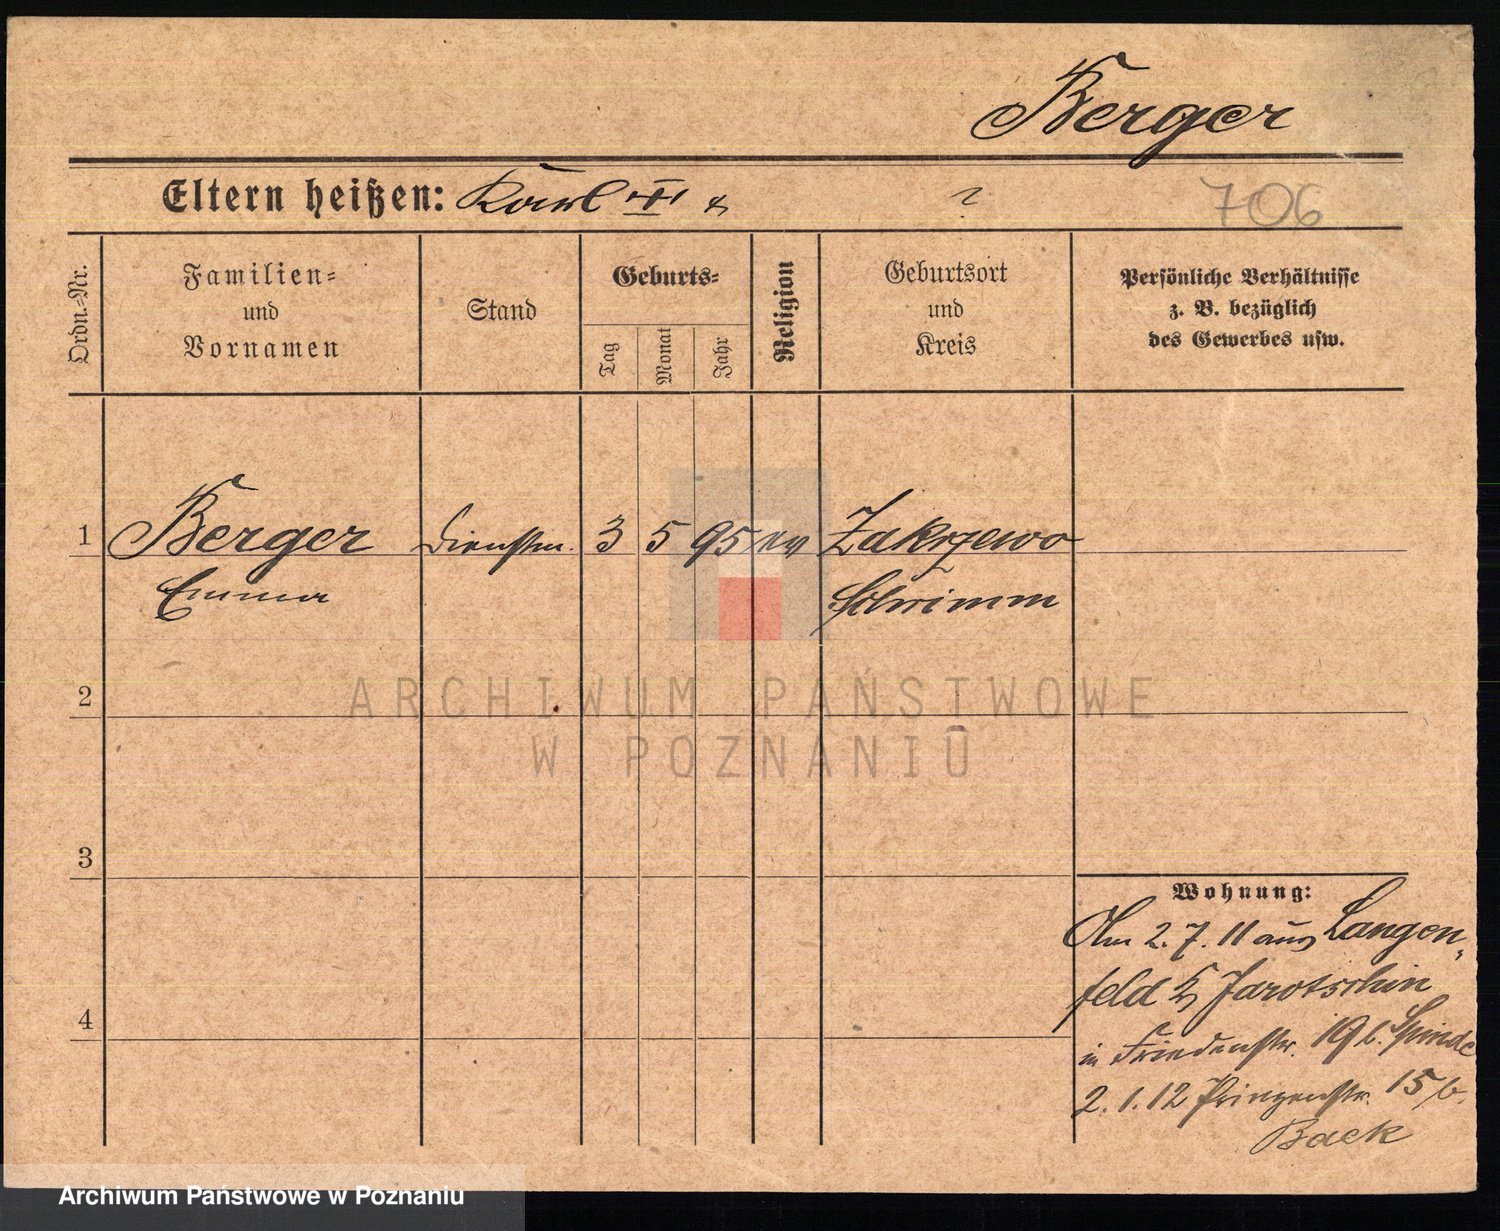 Berger
Eltern heißen: Karl III & ?
706
Ordn.-Nr.
Familien-
und
Vornamen
Stand
Geburts-
Tag
Monat
Jahr
Religion
Geburtsort
und
Kreis
Persönliche Verhältnisse
z. B. bezüglich
des Gewerbes usw.
1 Berger Dienstm. 3 5 95 ev Zakrzewo
Emma Schrimm
2
3
4
Wohnung:
Am 2. 7. 11 aus Langen-
feld Kr Jarotschin
in Friedenstr. 19 b. Spinde
2. 1. 12 Prinzenstr. 15 b.
Back
ARCHIWUM PAŃSTWOWE
W POZNANIU
Archiwum Państwowe w Poznaniu